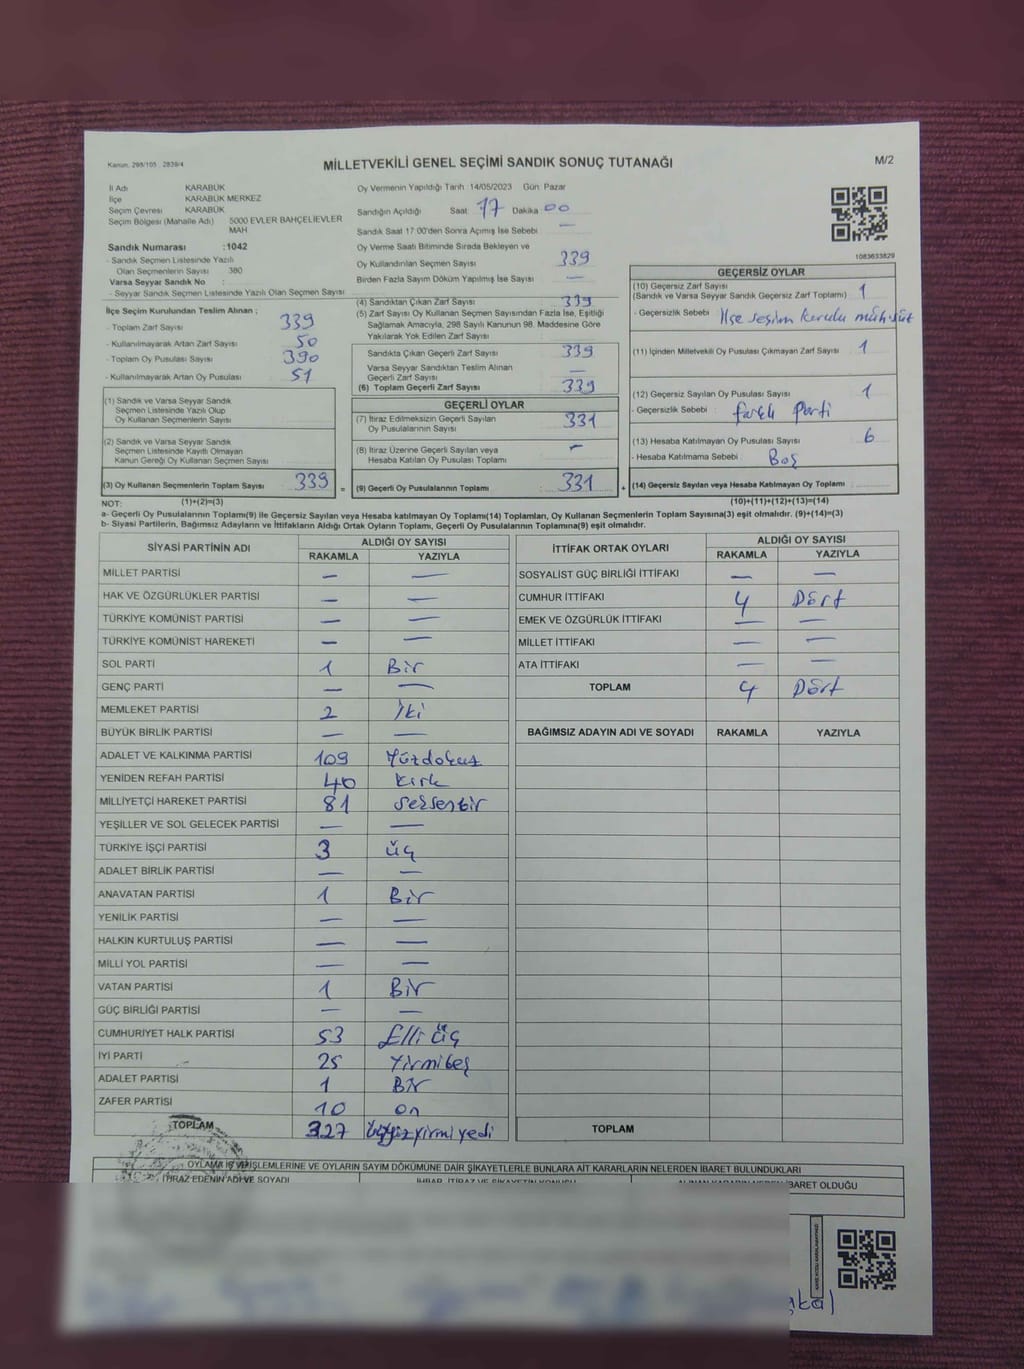 Kanun, 298/105 2839/4
MİLLETVEKİLİ GENEL SEÇİMİ SANDIK SONUÇ TUTANAĞI
M/2
İl Adı KARABÜK
İlçe KARABÜK MERKEZ
Seçim Çevresi KARABÜK
Seçim Bölgesi (Mahalle Adı) 5000 EVLER BAHÇELİEVLER
MAH
Sandık Numarası :1042
- Sandık Seçmen Listesinde Yazılı
Olan Seçmenlerin Sayısı 380
Varsa Seyyar Sandık No :
- Seyyar Sandık Seçmen Listesinde Yazılı Olan Seçmen Sayısı
Oy Vermenin Yapıldığı Tarih 14/05/2023 Gün Pazar
Sandığın Açıldığı Saat 17 Dakika 00
Sandık Saat 17:00'den Sonra Açımış İse Sebebi —
Oy Verme Saati Bitiminde Sırada Bekleyen ve
Oy Kullandırılan Seçmen Sayısı 339
Birden Fazla Sayım Döküm Yapılmış İse Sayısı —
1083633829
İlçe Seçim Kurulundan Teslim Alınan ;
- Toplam Zarf Sayısı 339
- Kullanılmayarak Artan Zarf Sayısı 50
- Toplam Oy Pusulası Sayısı 390
- Kullanılmayarak Artan Oy Pusulası 51
(1) Sandık ve Varsa Seyyar Sandık
Seçmen Listesinde Yazılı Olup
Oy Kullanan Seçmenlerin Sayısı
(2) Sandık ve Varsa Seyyar Sandık
Seçmen Listesinde Kayıtlı Olmayan
Kanun Gereği Oy Kullanan Seçmen Sayısı
(3) Oy Kullanan Seçmenlerin Toplam Sayısı 339 =
(1)+(2)=(3)
(4) Sandıktan Çıkan Zarf Sayısı 339
(5) Zarf Sayısı Oy Kullanan Seçmen Sayısından Fazla İse, Eşitliği
Sağlamak Amacıyla, 298 Sayılı Kanunun 98. Maddesine Göre
Yakılarak Yok Edilen Zarf Sayısı
Sandıkta Çıkan Geçerli Zarf Sayısı 339
Varsa Seyyar Sandıktan Teslim Alınan
Geçerli Zarf Sayısı —
(6) Toplam Geçerli Zarf Sayısı 339
GEÇERLİ OYLAR
(7) İtiraz Edilmeksizin Geçerli Sayılan
Oy Pusulalarının Sayısı 331
(8) İtiraz Üzerine Geçerli Sayılan veya
Hesaba Katılan Oy Pusulası Toplamı —
(9) Geçerli Oy Pusulalarının Toplamı 331 +
GEÇERSİZ OYLAR
(10) Geçersiz Zarf Sayısı
(Sandık ve Varsa Seyyar Sandık Geçersiz Zarf Toplamı) 1
- Geçersizlik Sebebi : İlçe seçim kurulu mührsüt
(11) İçinden Milletvekili Oy Pusulası Çıkmayan Zarf Sayısı 1
(12) Geçersiz Sayılan Oy Pusulası Sayısı 1
- Geçersizlik Sebebi : farklı Parti
(13) Hesaba Katılmayan Oy Pusulası Sayısı 6
- Hesaba Katılmama Sebebi : Boş
(14) Geçersiz Sayılan veya Hesaba Katılmayan Oy Toplamı :
(10)+(11)+(12)+(13)=(14)
NOT:
a- Geçerli Oy Pusulasının Toplamı(9) ile Geçersiz Sayılan veya Hesaba katılmayan Oy Toplamı(14) Toplamları, Oy Kullanan Seçmenlerin Toplam Sayısına(3) eşit olmalıdır. (9)+(14)=(3)
b- Siyasi Partilerin, Bağımsız Adayların ve İttifakların Aldığı Ortak Oyların Toplamı, Geçerli Oy Pusulasının Toplamına(9) eşit olmalıdır.
SİYASİ PARTİNİN ADI ALDIĞI OY SAYISI
RAKAMLA YAZIYLA
MİLLET PARTİSİ — —
HAK VE ÖZGÜRLÜKLER PARTİSİ — —
TÜRKİYE KOMÜNİST PARTİSİ — —
TÜRKİYE KOMÜNİST HAREKETİ — —
SOL PARTİ 1 Bir
GENÇ PARTİ — —
MEMLEKET PARTİSİ 2 İki
BÜYÜK BİRLİK PARTİSİ — —
ADALET VE KALKINMA PARTİSİ 109 Yüzdokuz
YENİDEN REFAH PARTİSİ 40 Kırk
MİLLİYETÇİ HAREKET PARTİSİ 81 seksenbir
YEŞİLLER VE SOL GELECEK PARTİSİ — —
TÜRKİYE İŞÇİ PARTİSİ 3 üç
ADALET BİRLİK PARTİSİ — —
ANAVATAN PARTİSİ 1 Bir
YENİLİK PARTİSİ — —
HALKIN KURTULUŞ PARTİSİ — —
MİLLİ YOL PARTİSİ — —
VATAN PARTİSİ 1 Bir
GÜÇ BİRLİĞİ PARTİSİ — —
CUMHURİYET HALK PARTİSİ 53 Elli üç
İYİ PARTİ 25 Yirmibeş
ADALET PARTİSİ 1 Bir
ZAFER PARTİSİ 10 on
TOPLAM 327 üçyüzyirmiyedi
İTTİFAK ORTAK OYLARI ALDIĞI OY SAYISI
RAKAMLA YAZIYLA
SOSYALİST GÜÇ BİRLİĞİ İTTİFAKI — —
CUMHUR İTTİFAKI 4 Dört
EMEK VE ÖZGÜRLÜK İTTİFAKI — —
MİLLET İTTİFAKI — —
ATA İTTİFAKI — —
TOPLAM 4 Dört
BAĞIMSIZ ADAYIN ADI VE SOYADI RAKAMLA YAZIYLA
TOPLAM
OYLAMA İŞ VE İŞLEMLERİNE VE OYLARIN SAYIM DÖKÜMÜNE DAİR ŞİKAYETLERLE BUNLARA AİT KARARLARIN NELERDEN İBARET BULUNDUKLARI
İTİRAZ EDENİN ADI VE SOYADI İHBAR, İTİRAZ VE ŞİKAYETİN KONUSU ALINAN KARARIN NEDEN İBARET OLDUĞU